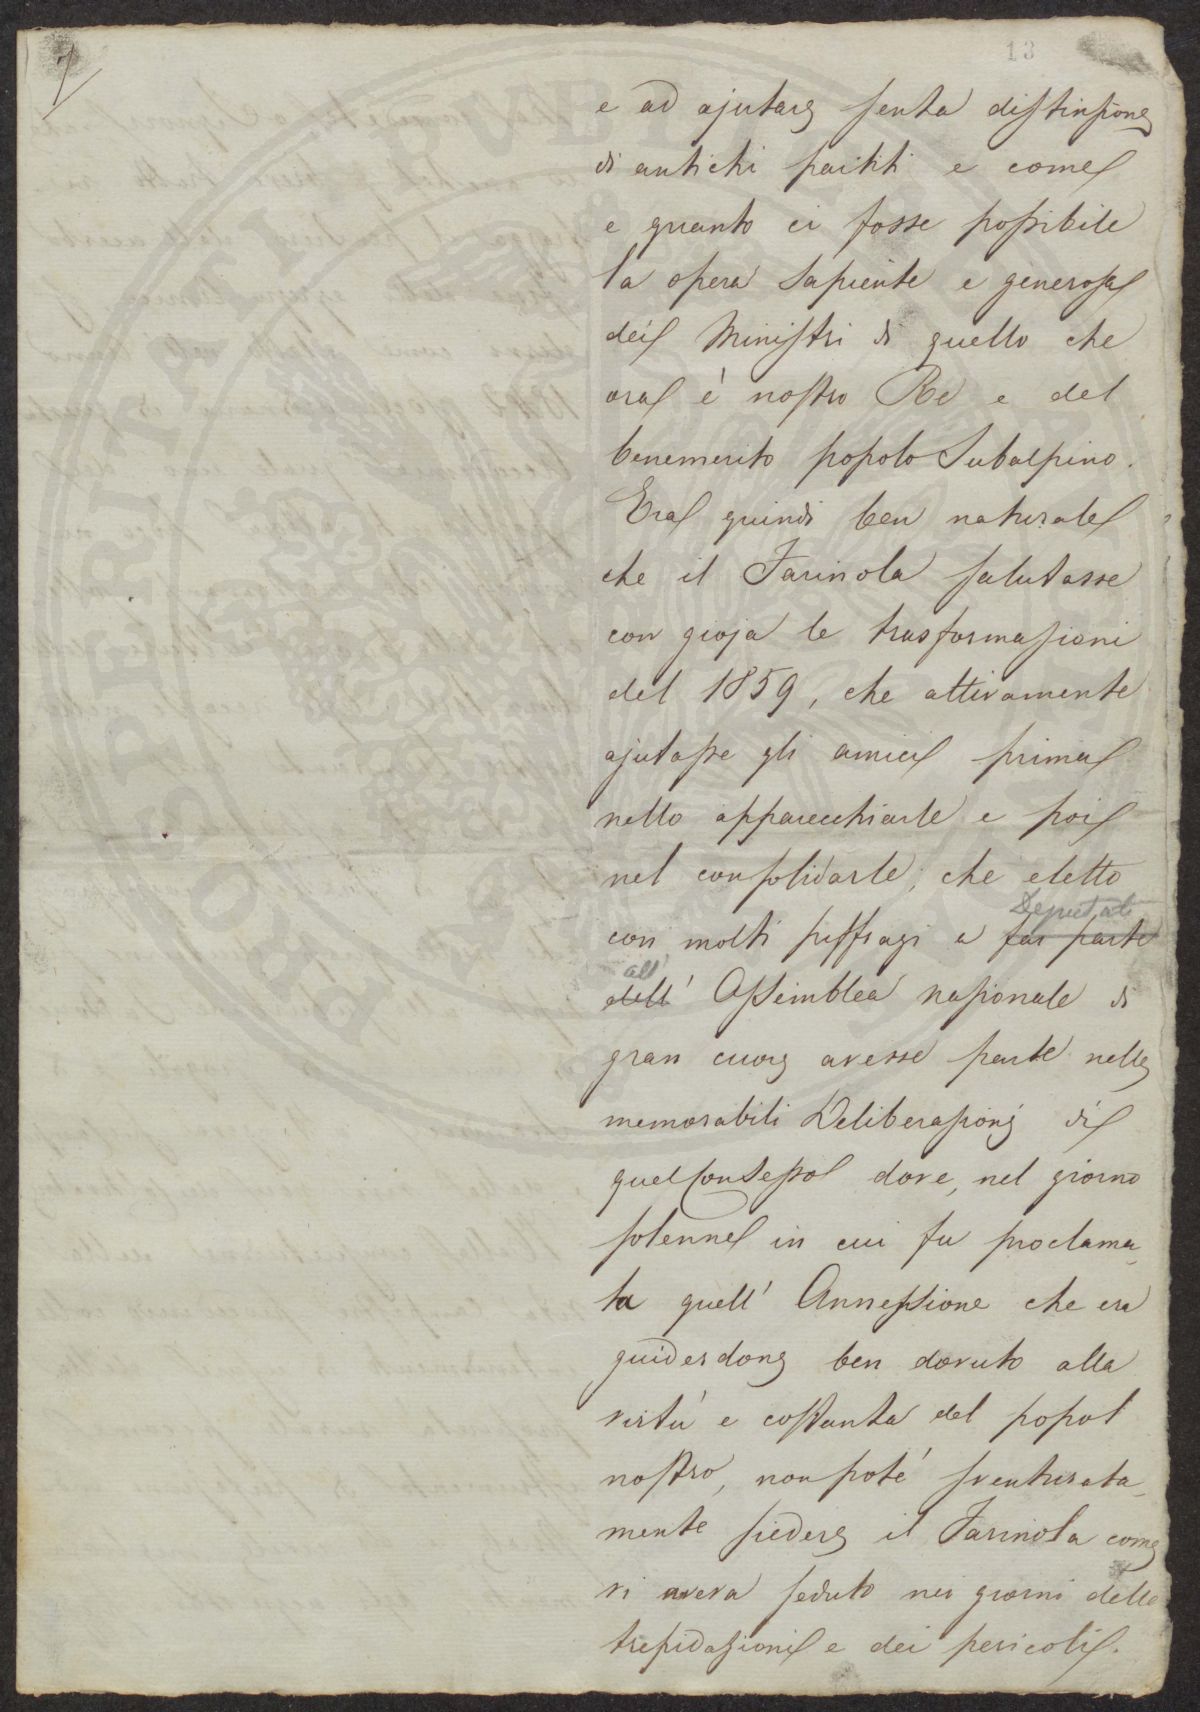 13
e ad ajutare senza distinzione
di antichi partiti e come
e quanto ci fosse possibile
la opera sapiente e generosa
dei Ministri di quello che
ora è nostro Re e del
benemerito popolo Subalpino.
Era quindi ben naturale
che il Farinola salutasse
con gioja le trasformazioni
del 1859, che attivamente
ajutasse gli amici prima
nello apparecchiarle e poi
nel consolidarle, che eletto
Deputato
con molti suffragi a far parte
all'
dell' Assemblea nazionale di
gran cuore avesse parte nelle
memorabili Deliberazioni di
quel Consesso dove, nel giorno
solenne in cui fu proclama-
ta quell' Annessione che era
guiderdone ben dovuto alla
virtù e costanza del popol
nostro, non poté sventurata-
mente siedere il Farinola come
vi aveva seduto nei giorni delle
trepidazioni e dei pericoli.